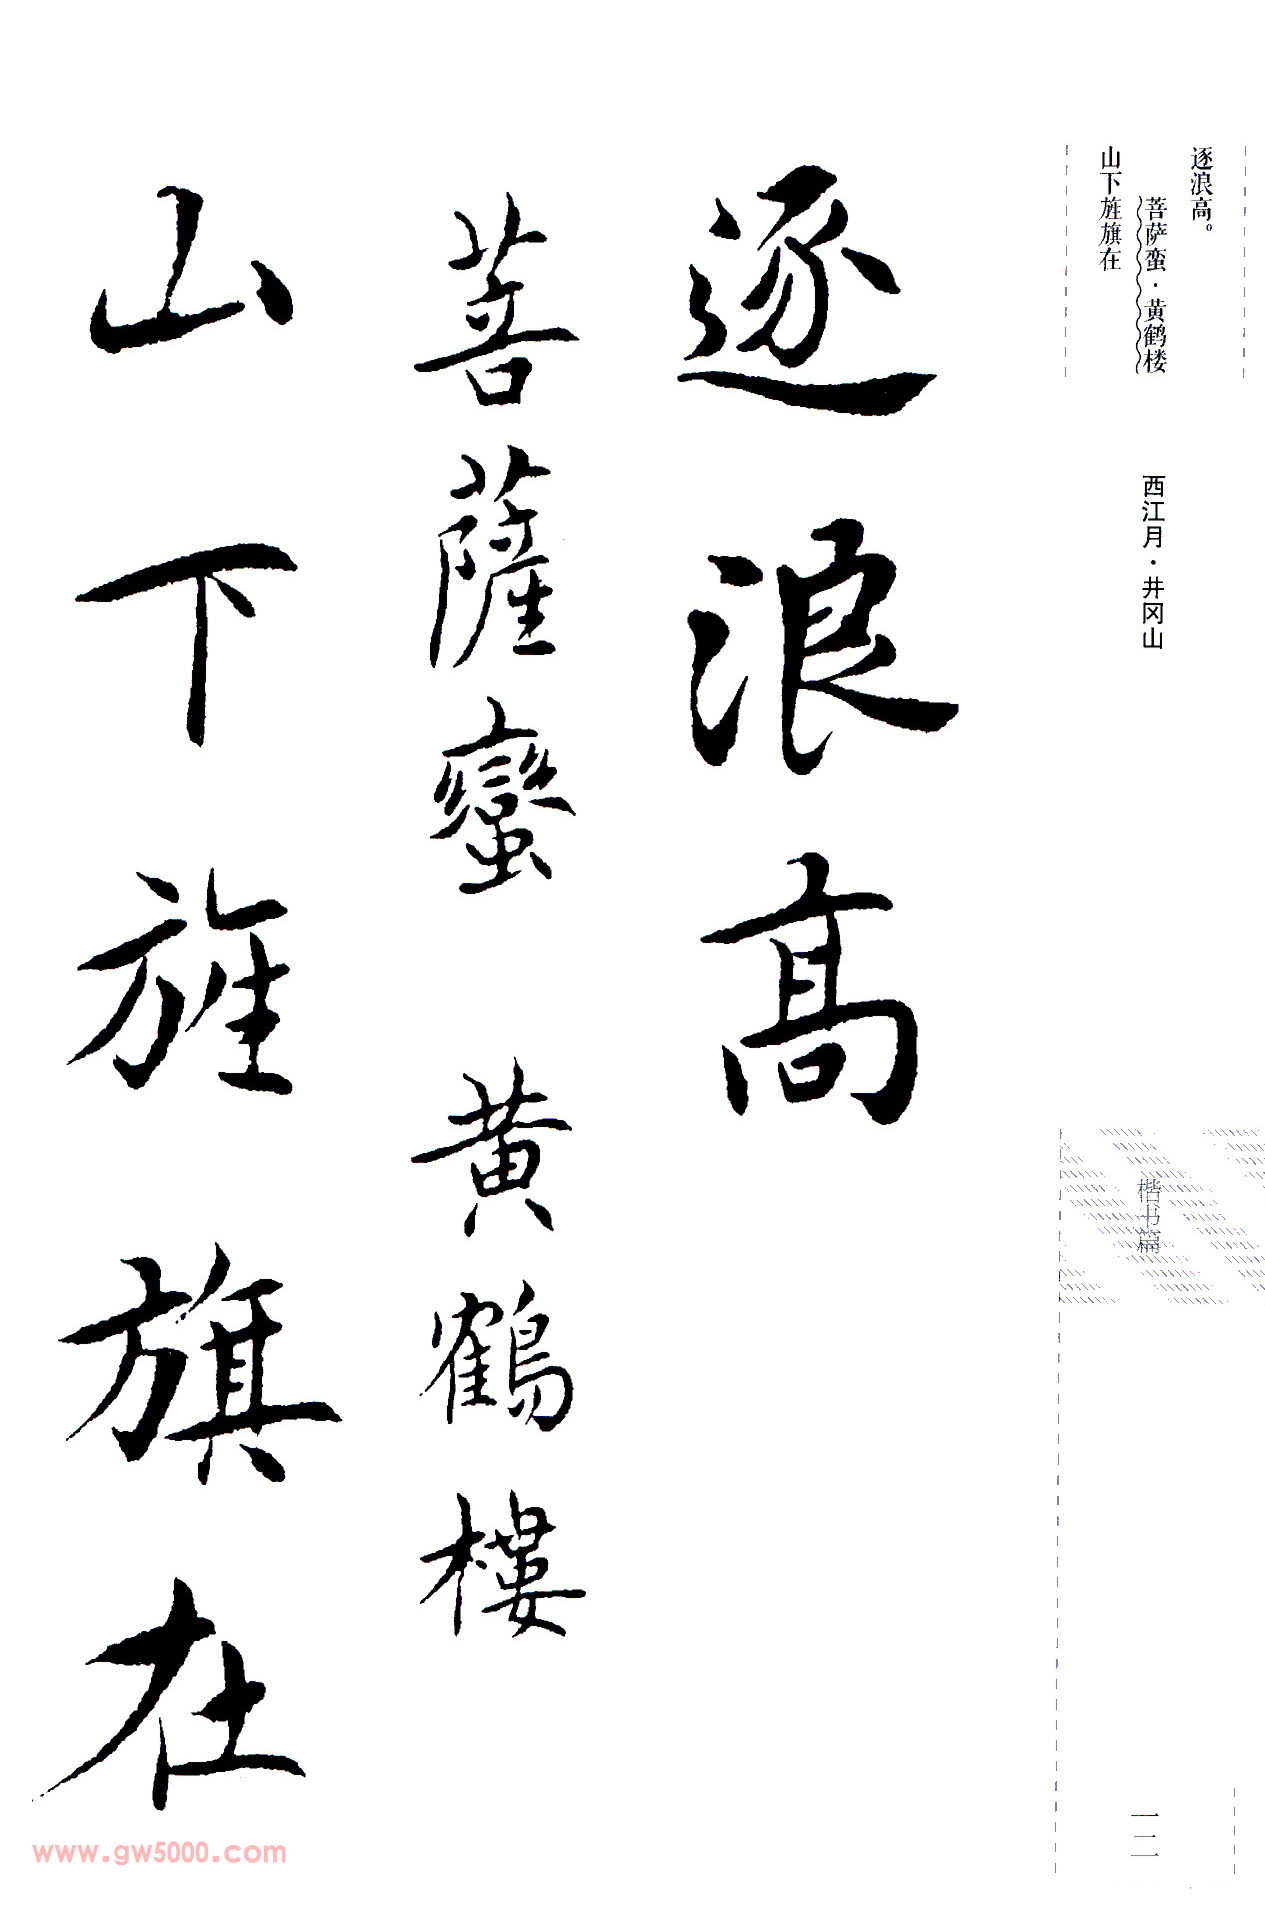 逐浪高。
菩萨蛮·黄鹤楼
山下旌旗在
西江月·井冈山
楷书篇
一二
逐浪高
菩薩蠻 黄鶴樓
山下旌旗在
www.gw5000.com